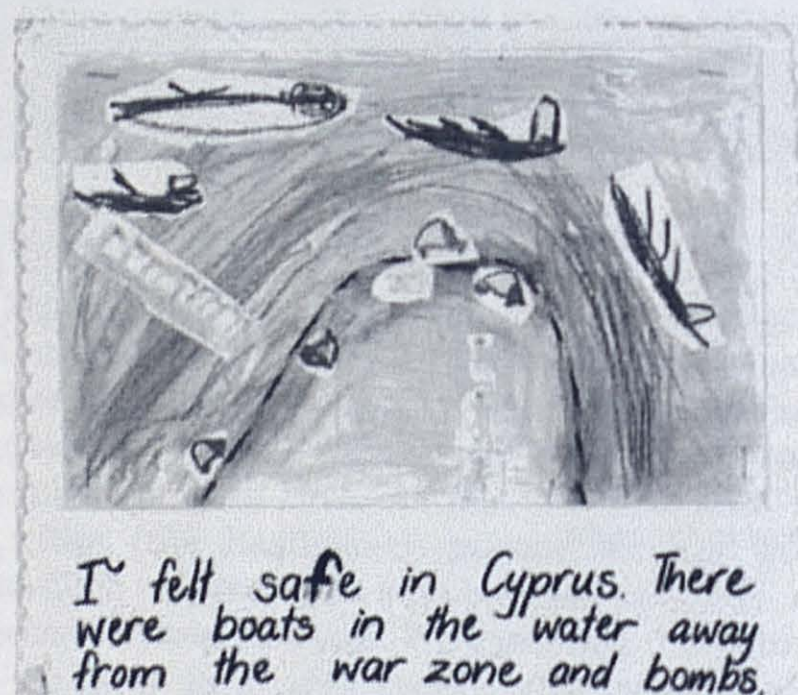 I felt safe in Cyprus. There
were boats in the water away
from the war zone and bombs.